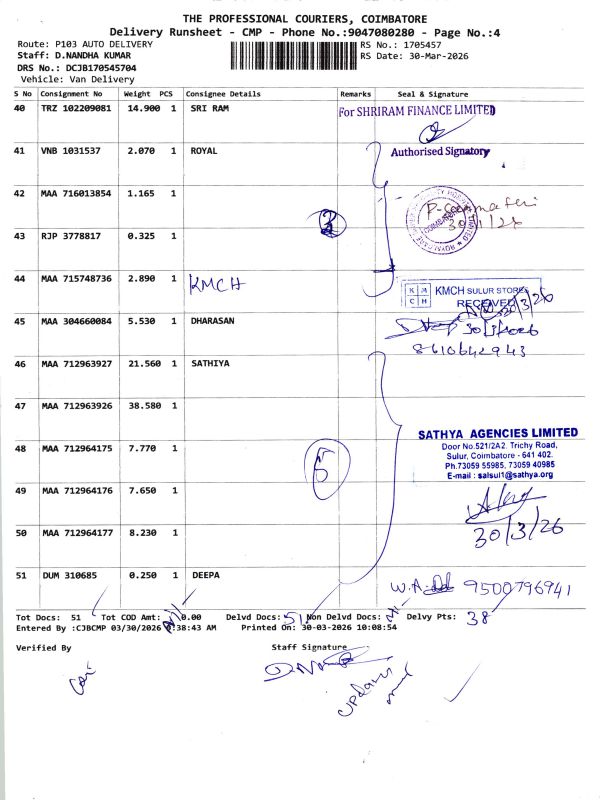 THE PROFESSIONAL COURIERS, COIMBATORE
Delivery Runsheet - CMP - Phone No.:9047080280 - Page No.:4
Route: P103 AUTO DELIVERY
RS No.: 1705457
Staff: D.NANDHA KUMAR
RS Date: 30-Mar-2026
DRS No.: DCJB170545704
Vehicle: Van Delivery
S No Consignment No Weight PCS Consignee Details Remarks Seal & Signature
40 TRZ 102209081 14.900 1 SRI RAM
For SHRIRAM FINANCE LIMITED
Authorised Signatory
41 VNB 1031537 2.070 1 ROYAL
42 MAA 716013854 1.165 1
30/1/26
43 RJP 3778817 0.325 1
3
44 MAA 715748736 2.890 1 KMCH
KMCH SULUR STORES
RECEIVED
45 MAA 304660084 5.530 1 DHARASAN
30/3/2026
8610642943
46 MAA 712963927 21.560 1 SATHIYA
47 MAA 712963926 38.580 1
SATHYA AGENCIES LIMITED
Door No.521/2A2, Trichy Road,
Sulur, Coimbatore - 641 402.
Ph.73059 55985, 73059 40985
E-mail : salsul1@sathya.org
48 MAA 712964175 7.770 1
5
49 MAA 712964176 7.650 1
30/3/26
50 MAA 712964177 8.230 1
51 DUM 310685 0.250 1 DEEPA
W.A 9500796941
Tot Docs: 51 Tot COD Amt: 0.00 Delvd Docs: 51 Non Delvd Docs: Delvy Pts: 38
Entered By :CJBCMP 03/30/2026 :38:43 AM Printed On: 30-03-2026 10:08:54
Verified By
Staff Signature